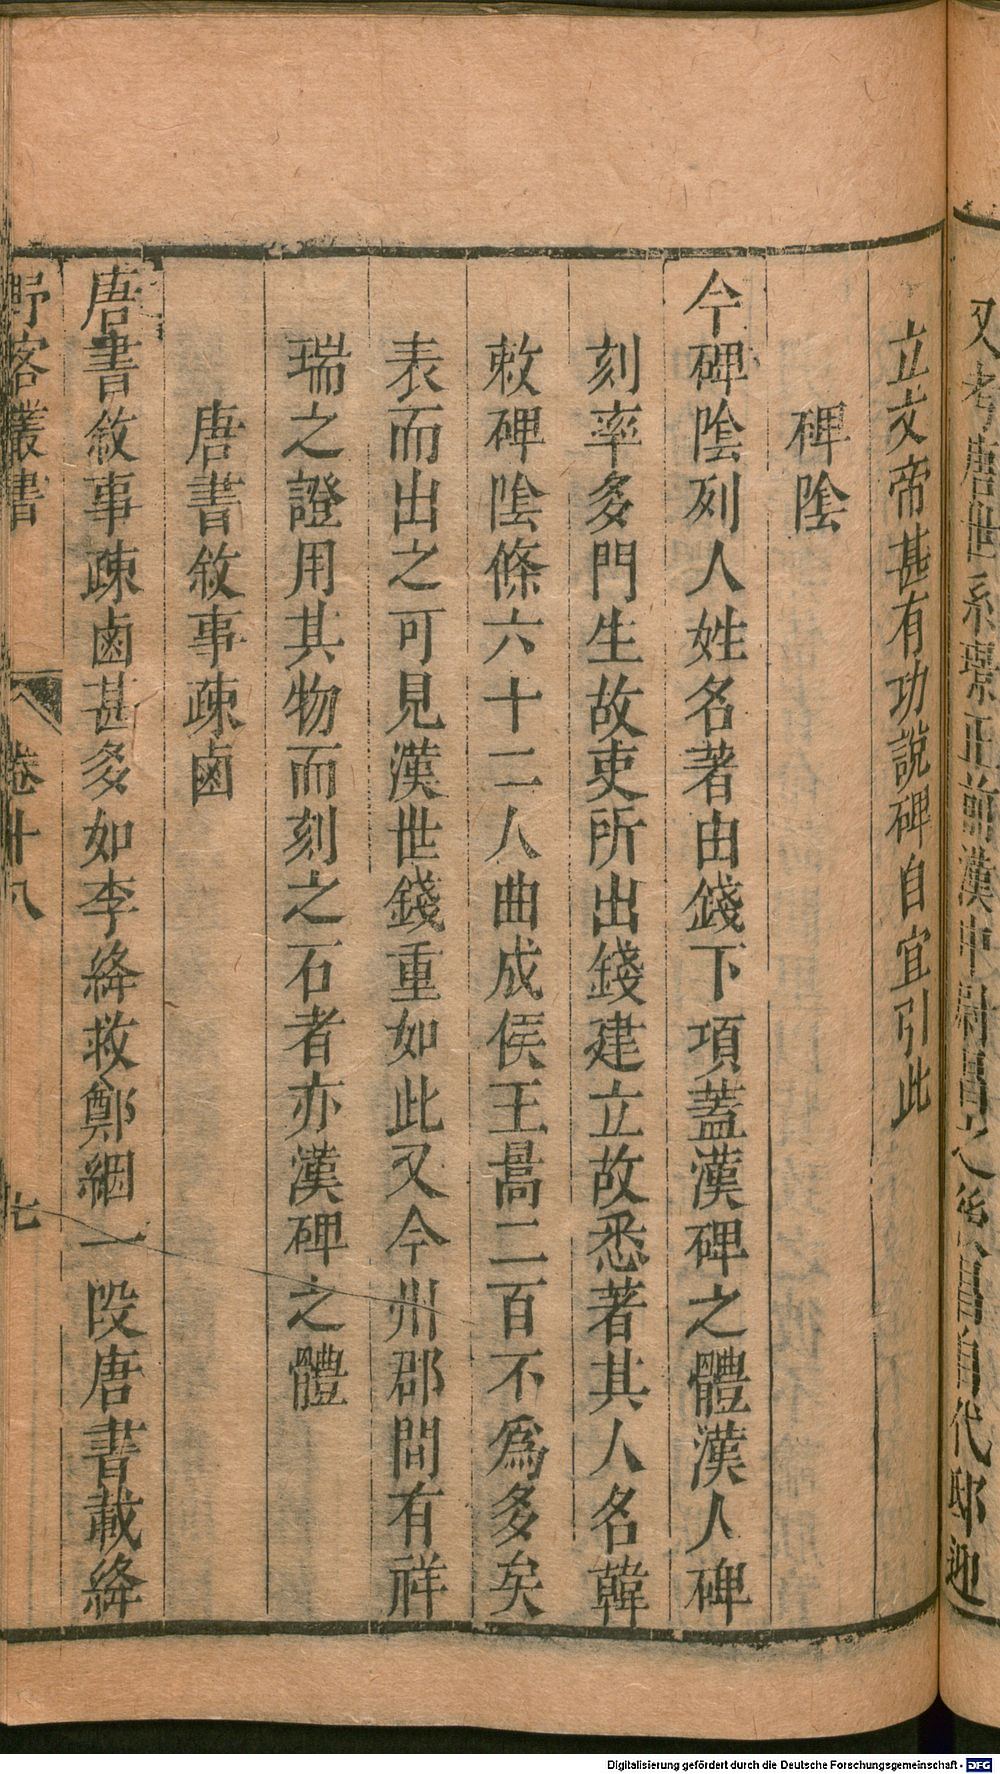 又考唐世系環正前漢中尉昌之後昌自代邸迎
立文帝甚有功說碑自宜引此
碑陰
今碑陰列人姓名著由錢下項蓋漢碑之體漢人碑
刻率多門生故吏所出錢建立故悉著其人名韓
敕碑陰條六十二人曲成侯王暠二百不爲多矣
表而出之可見漢世錢重如此又今州郡間有祥
瑞之證用其物而刻之石者亦漢碑之體
唐書敘事疎鹵
唐書敘事疎鹵甚多如李絳救鄭絪一段唐書載絳
野客叢書 卷十八
Digitalisierung gefördert durch die Deutsche Forschungsgemeinschaft - DFG